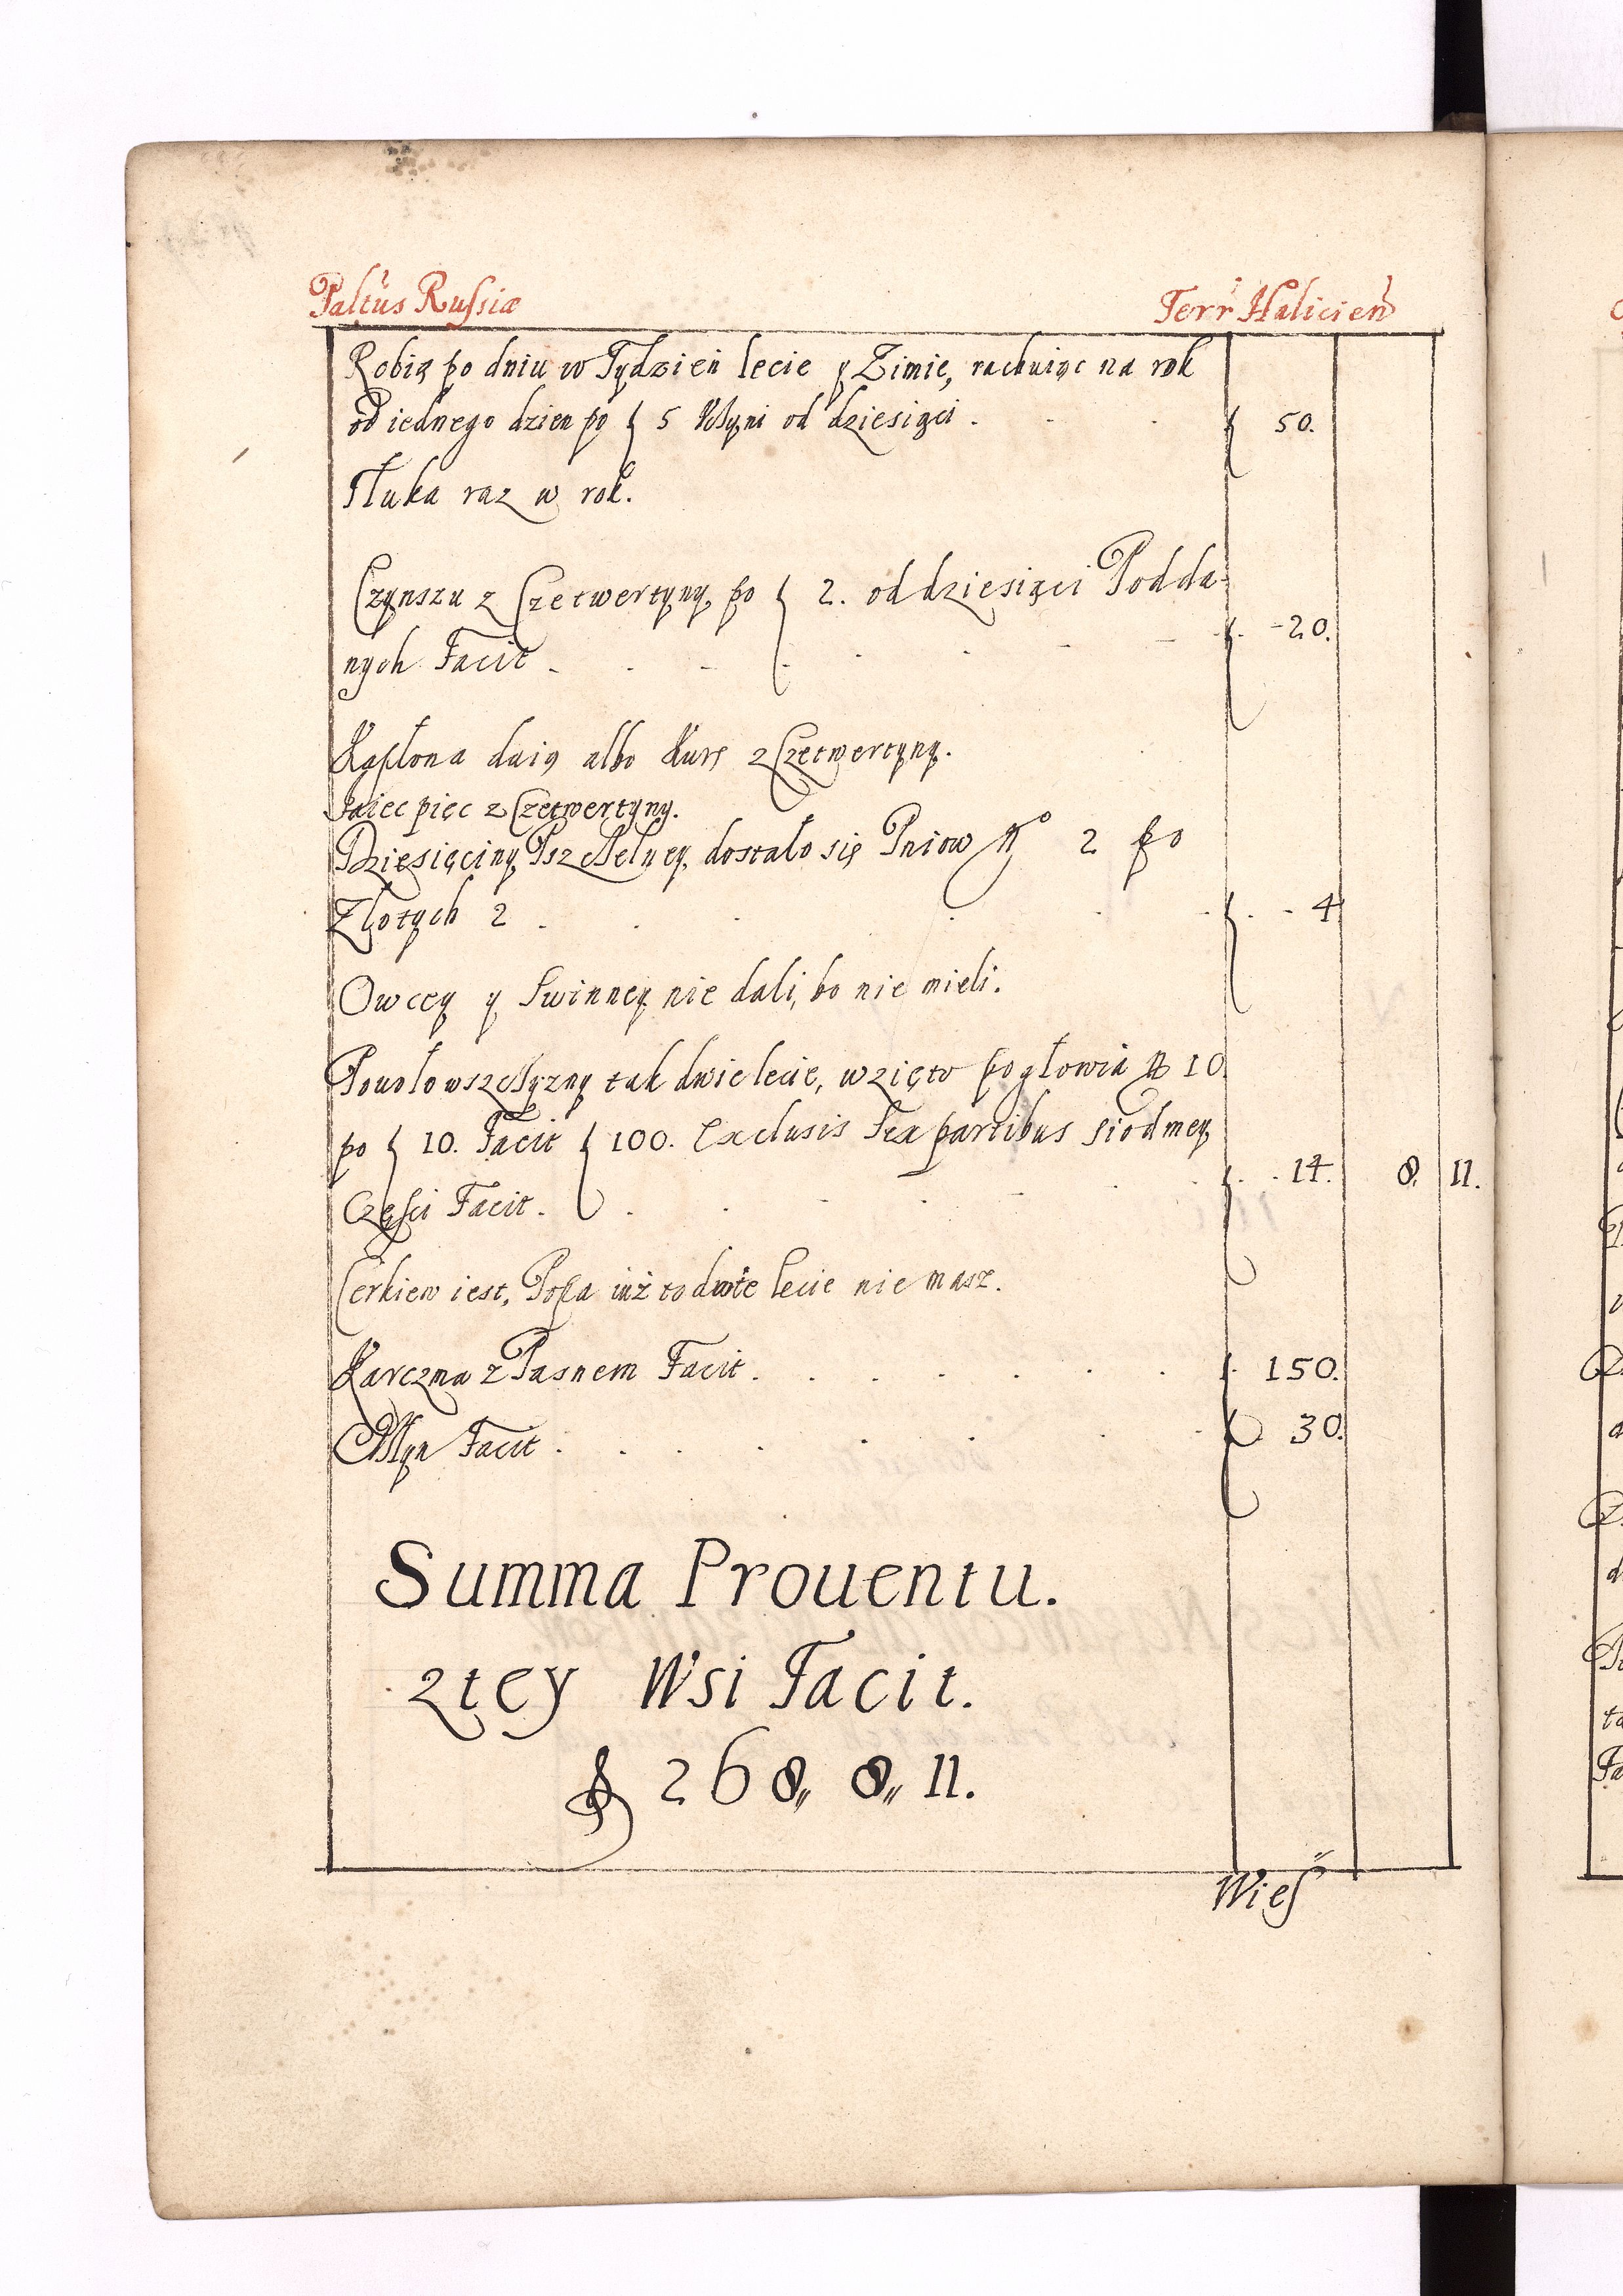 Paltus Russiæ Terr Halicien
Robią po dniu w Tydzień lecie y Zimie, rachuiąc na rok
od iednego dzien po f 5 Czyni od dziesiąci . . . f 50.
Tłuka raz w rok.
Czynszu z Czetwertyny po f 2. od dziesiąci Podda-
nych Facit . . . f. 20.
Kapłona daią albo Kurę z Czetwertyny.
Jaiec pięc z Czetwertyny.
Dziesięciny Pszczelney dostało się Pniow Nº 2 po
Złotych 2 . . . f. 4
Owcey y Swinney nie dali, bo nie mieli.
Powołowszczyzny tak dwie lecie, wzięto pogłowia Nº 10
po f 10. Facit f 100. Exclusis sex partibus siodmey
Części Facit. . . . f. 14. 8. 11.
Cerkiew iest, Popa iuż to dwie lecie nie masz.
Karczma z Pasnem Facit . . . f. 150.
Młyn Facit . . . f 30.
Summa Prouentu.
z tey Wsi Facit.
f 268,, 8,, 11.
Wieś